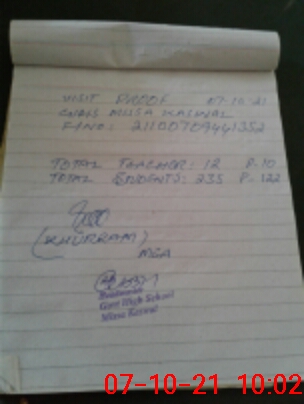 VISIT PROOF 07-10-21
GHS MUSA KASWAL
TOTAL TEACHER: 12 P-10
TOTAL STUDENTS: 235 P-122
(KHURRAM)
MEA
Headmaster
Govt High School
Missa Keswal
07-10-21 10:02